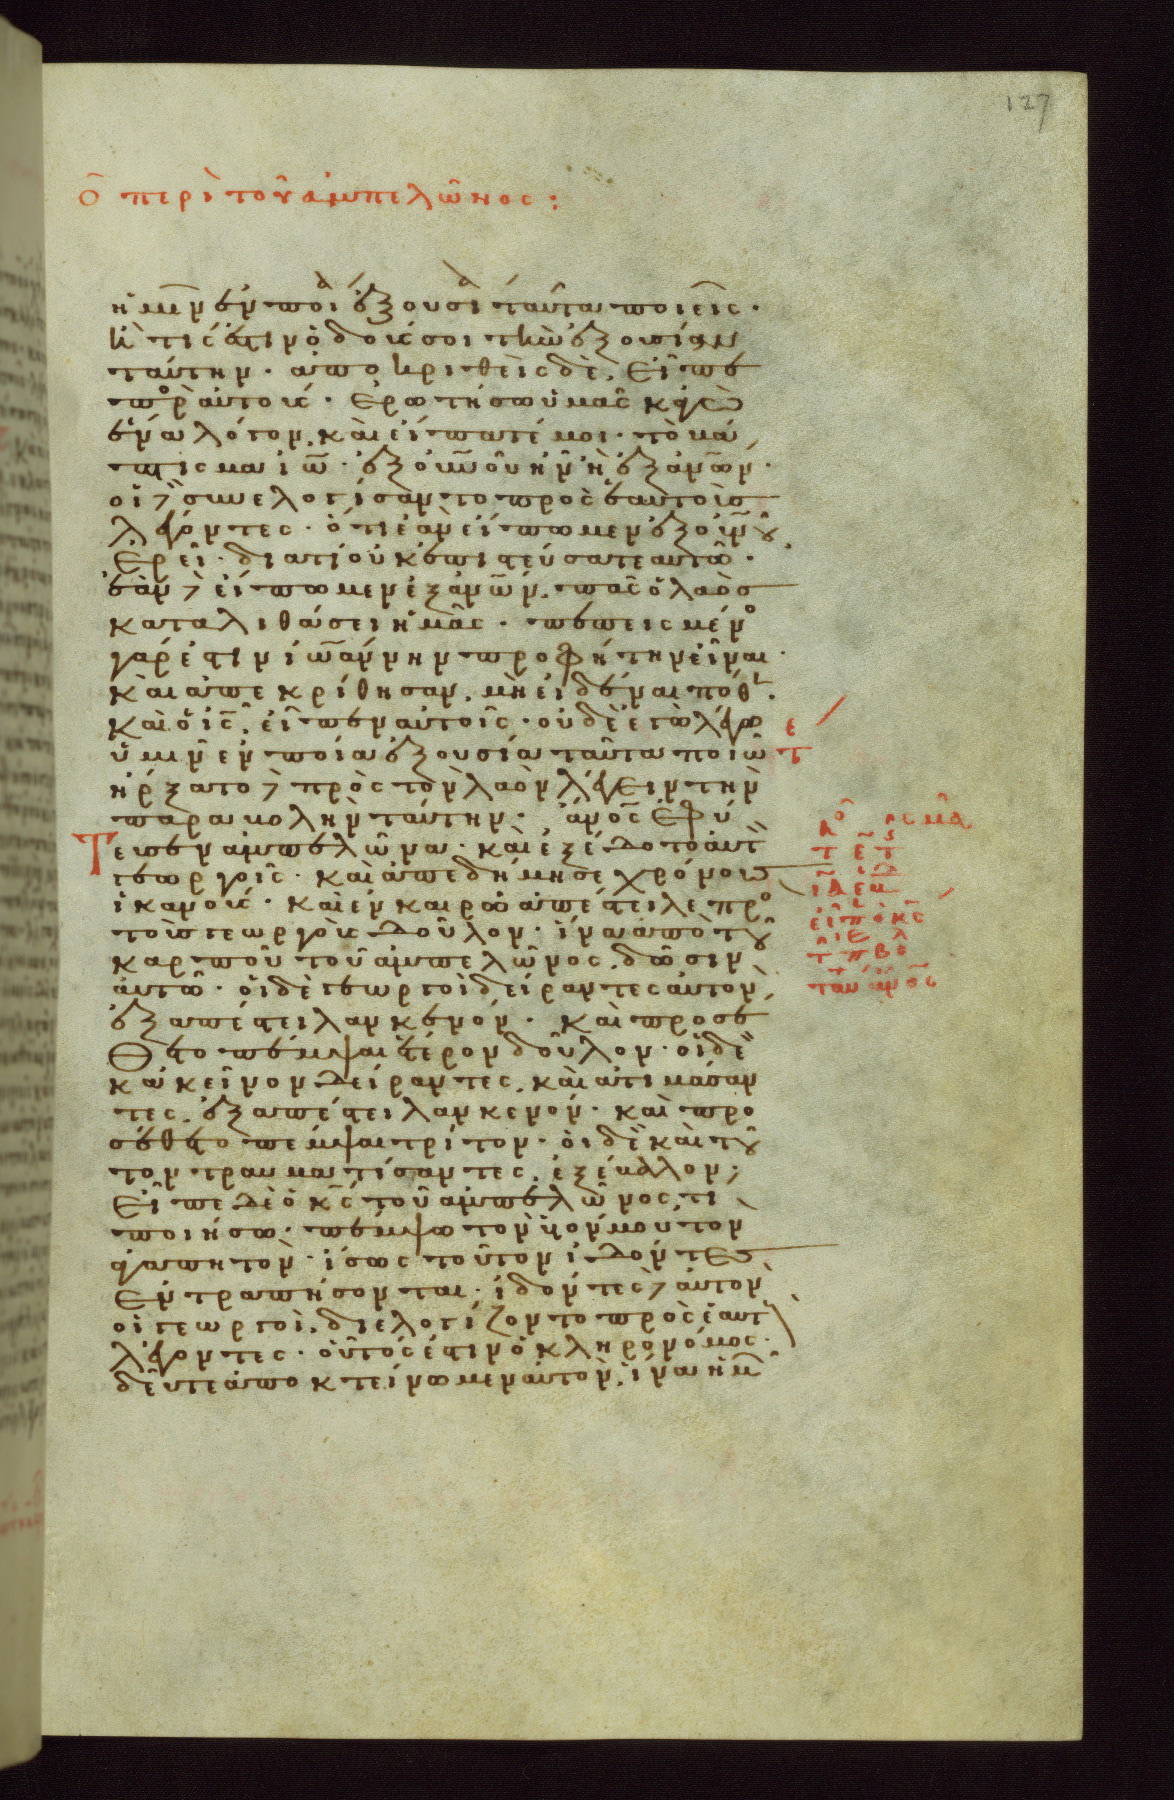 127
ο̄ περὶ τοῦ ἀμπελῶνος:
ἡμῖν ἐν ποίᾳ ἐξουσίᾳ ταῦτα ποιεῖς·
ἢ τίς ἐστιν ὁ δούς σοι τὴν ἐξουσίαν
ταύτην· ἀποκριθεὶς δὲ, εἶπε
πρὸς αὐτούς· ἐρωτήσω ὑμᾶς κἀγὼ
ἕνα λόγον, καὶ εἴπατέ μοι· τὸ βά
πτισμα ἰω̅· ἐξ οὐ̅νοῦ ἦν ἢ ἐξ ἀν̅ων·
οἱ δὲ συνελογίσαντο πρὸς ἑαυτοὺσ
λέγοντες· ὅτι ἐὰν εἴπωμεν ἐξ οὐ̅νοῦ
ἐρεῖ· διατί οὐκ ἐπιστεύσατε αὐτῷ·
ἐὰν δὲ εἴπωμεν ἐξ ἀν̅ων, πᾶς ὁ λαὸσ
καταλιθάσει ἡμᾶς· πεπεισμένος
γάρ ἐστιν ἰω̅άννην προφήτην εἶναι·
καὶ ἀπεκρίθησαν, μὴ εἰδέναι πόθεν·
καὶ ὁ ι̅ς̅, εἶπεν αὐτοῖς· οὐδὲ ἐγὼ λέγω
ὑμῖν ἐν ποίᾳ ἐξουσίᾳ ταῦτα ποιῶ
ἤρξατο δὲ πρὸς τὸν λαὸν λέγειν τὴν
παραβολὴν ταύτην· ἄν̅ο̅ς̅ ἐφύ
τευσεν ἀμπελῶνα· καὶ ἐξέδοτο αὐτὸν
γεωργοῖς· καὶ ἀπεδήμησε χρόνουσ
ἱκανούς· καὶ ἐν καιρῷ ἀπέστειλε πρὸς
τοὺς γεωργοὺς δοῦλον· ἵνα ἀπὸ τοῦ
καρποῦ τοῦ ἀμπελῶνος, δῶσιν
αὐτῷ· οἱ δὲ γεωργοὶ δείραντες αὐτὸν,
ἐξαπέστειλαν κενόν· καὶ προσέ
θετο πέμψαι ἕτερον δοῦλον· οἱ δὲ
κἀκεῖνον δείραντες, καὶ ἀτιμάσαν
τες, ἐξαπέστειλαν κενόν· καὶ προ
σέθετο πέμψαι τρίτον· οἱ δὲ καὶ τοῦ
τον τραυματίσαντες, ἐξέβαλον,
εἶπε δὲ ὁ κ̅ς̅ τοῦ ἀμπελῶνος, τί
ποιήσω· πέμψω τὸν υἱόν μου τὸν
ἀγαπητὸν· ἴσως τοῦτον ἰδόντεσ
ἐντραπήσονται· ἰδόντες δὲ αὐτὸν
οἱ γεωργοὶ, διελογίζοντο πρὸς ἑαυτοὺς
λέγοντες· οὗτός ἐστιν ὁ κληρονόμος·
δεῦτε ἀποκτείνωμεν αὐτὸν, ἵνα ἡμῶν